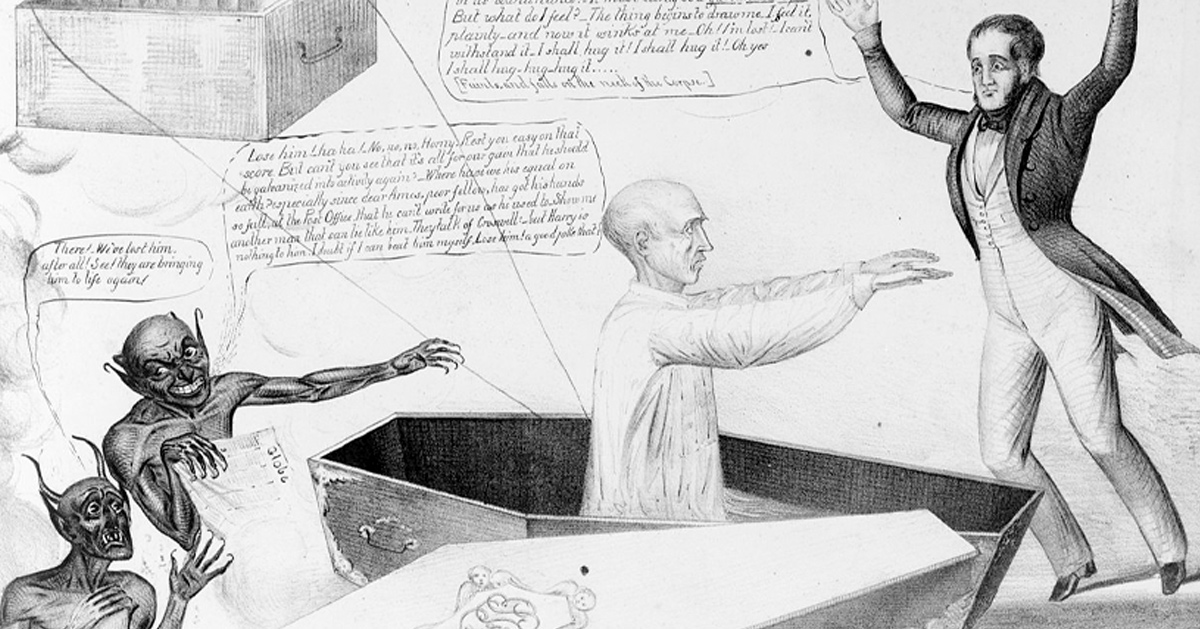 But what do I feel?_The thing begins to draw me_I feel it,
plainly_and now it winks at me_Oh! I'm lost!_I can't
withstand it_I shall hug it! I shall hug it!_Oh yes
I shall hug_hug_hug it.....
[Faints and falls on the neck of the Corpse.]
Lose him! ha ha! No, no, no, Horny_Rest you easy on that
score. But can't you see that it's all for our gain that he should
be galvanized into activity again?_Where have we his equal on
earth especially since dear Amos, poor fellow, has got his hands
so full, at the Post Office that he can't write for us as he used to. Show me
another man that can lie like him. They talk of Croswell!_but Harry is
nothing to him. I doubt if I can beat him myself. Lose him! a good joke that!
There! We've lost him,
after all! See! they are bringing
him to life again!
Globe